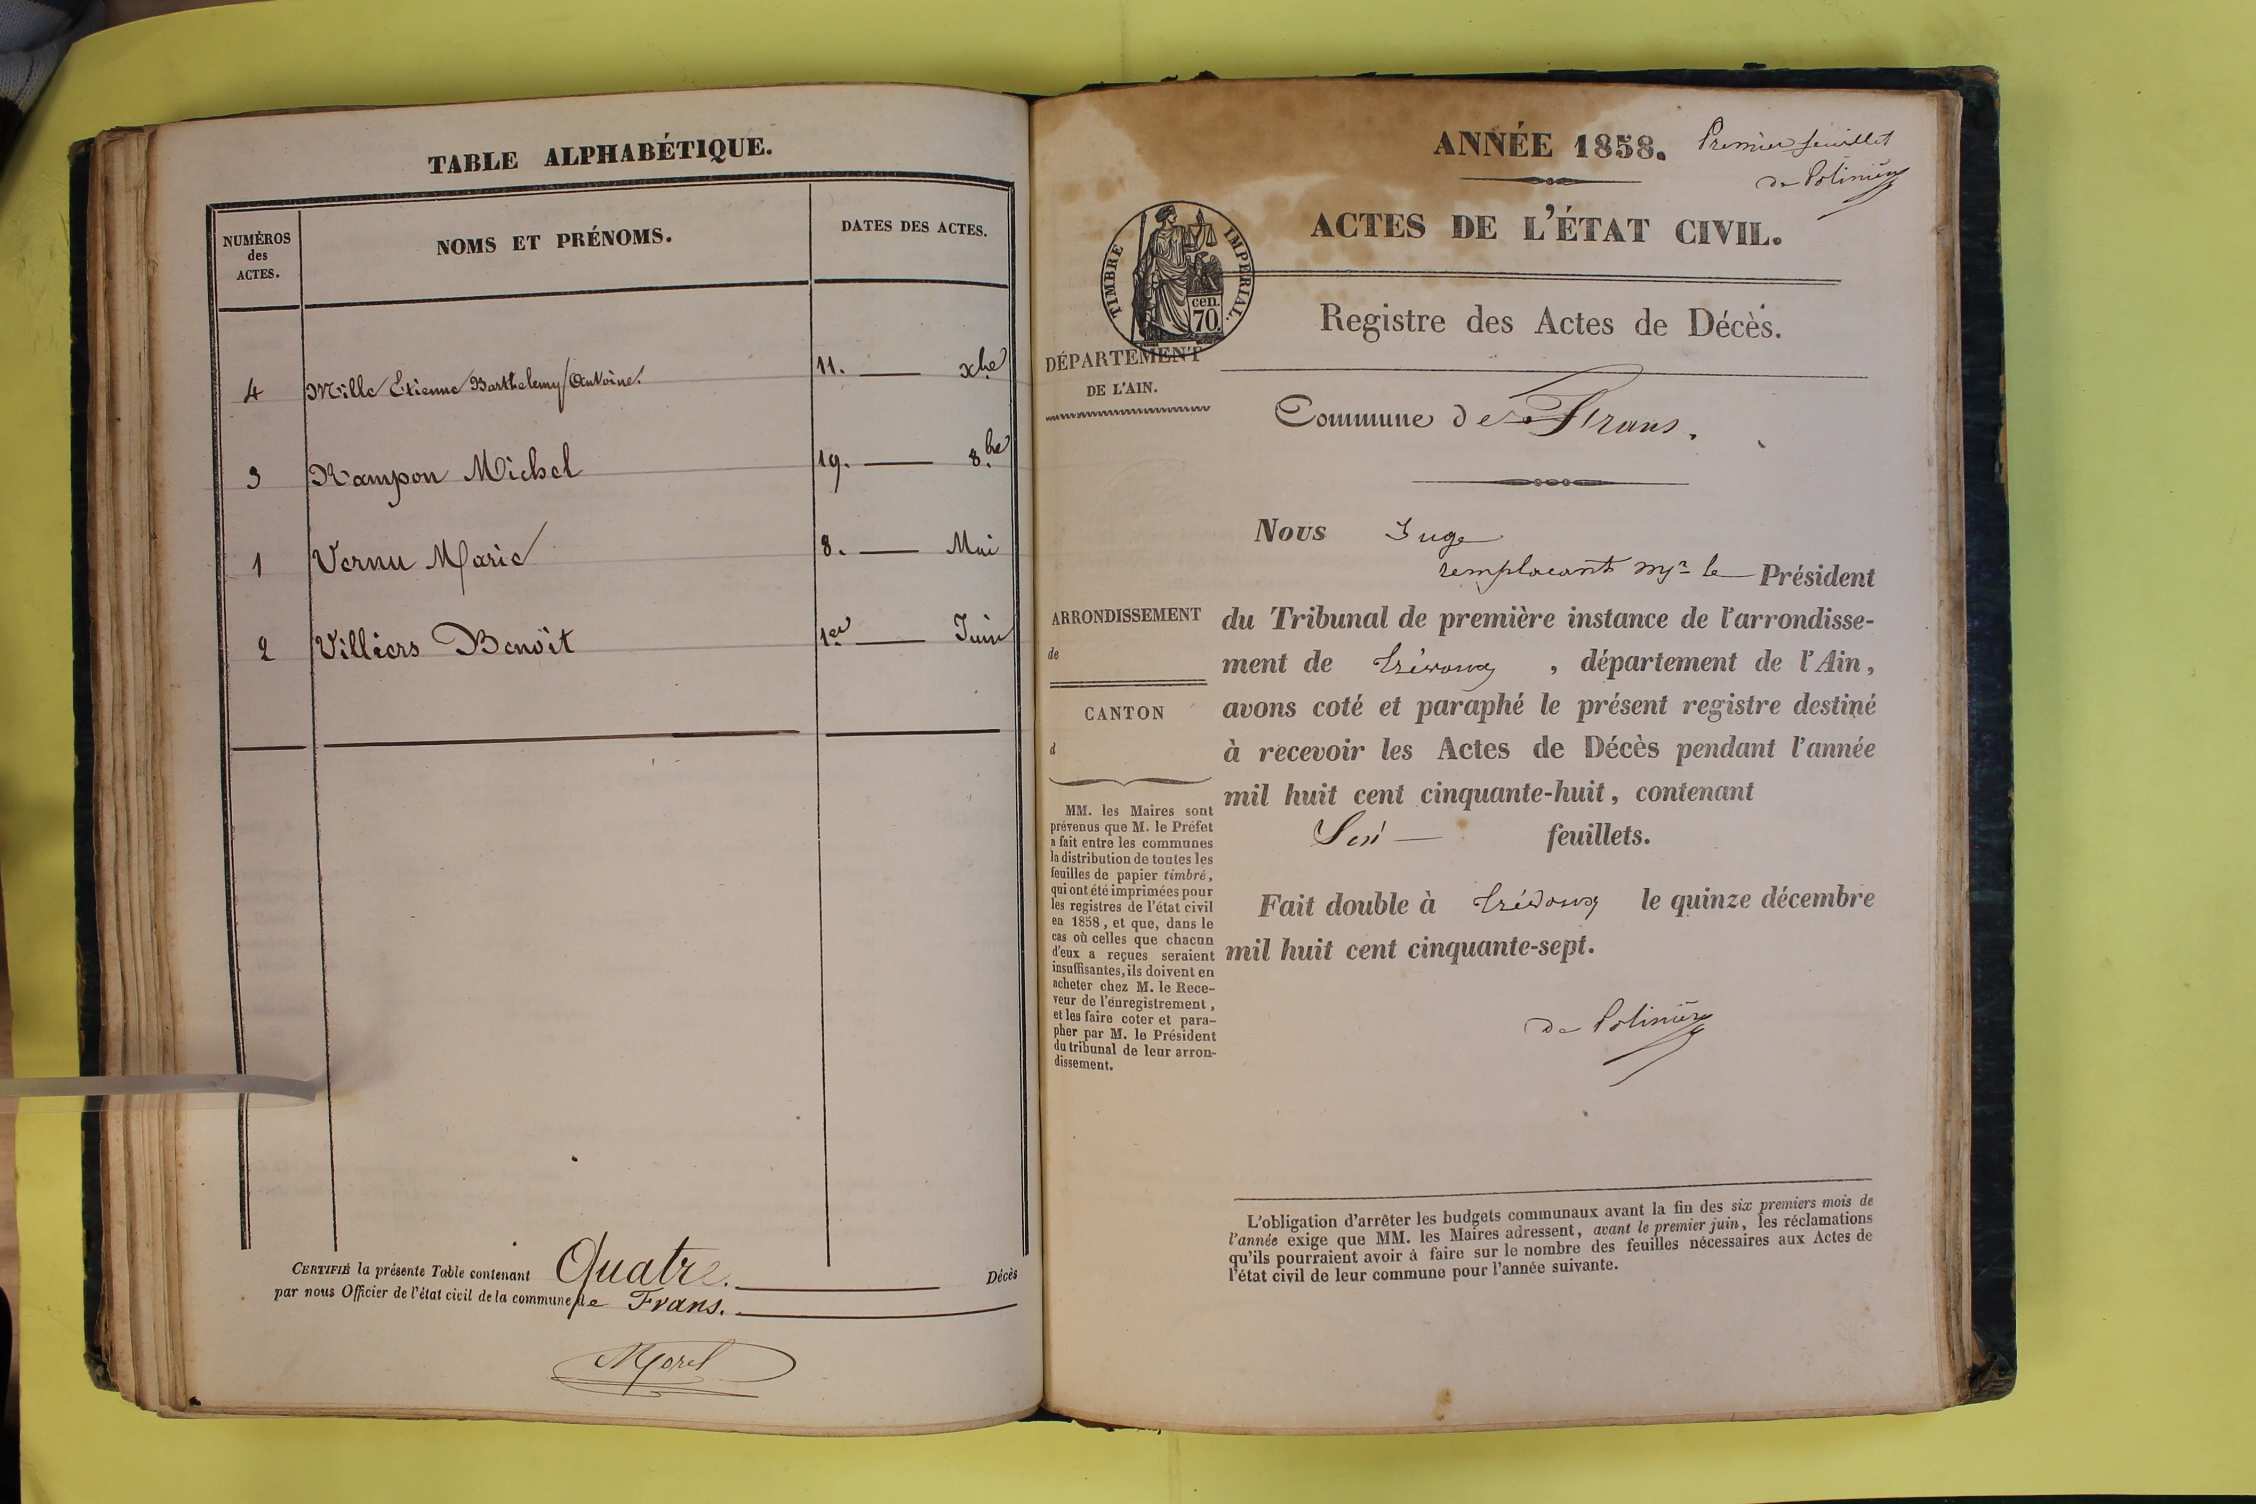 TABLE ALPHABÉTIQUE.
NUMÉROS
des
ACTES.
NOMS ET PRÉNOMS.
DATES DES ACTES.
4 Mille Etienne Barthelemy Antoine. 11. xbre
3 Rampon Michel 19. 8.bre
1 Vernu Marie 8. Mai
2 Villiers Benoît 1er Juin
CERTIFIÉ la présente Table contenant Quatre. Décès
par nous Officier de l'état civil de la commune de Frans.
Morel
ANNÉE 1858.
Premier feuillet
de Polinière
ACTES DE L'ÉTAT CIVIL.
TIMBRE IMPERIAL.
cen.
70
Registre des Actes de Décès.
DÉPARTEMENT
DE L'AIN.
Commune de Frans.
Nous Juge
remplacant Mr le Président
ARRONDISSEMENT
de
CANTON
d
du Tribunal de première instance de l'arrondisse-
ment de Trévoux, département de l'Ain,
avons coté et paraphé le présent registre destiné
à recevoir les Actes de Décès pendant l'année
mil huit cent cinquante-huit, contenant
feuillets.
Fait double à Trévoux le quinze décembre
mil huit cent cinquante-sept.
de Polinière
MM. les Maires sont
prévenus que M. le Préfet
a fait entre les communes
la distribution de toutes les
feuilles de papier timbré,
qui ont été imprimées pour
les registres de l'état civil
en 1858, et que, dans le
cas où celles que chacun
d'eux a reçues seraient
insuffisantes, ils doivent en
acheter chez M. le Rece-
veur de l'enregistrement,
et les faire coter et para-
pher par M. le Président
du tribunal de leur arron-
dissement.
L'obligation d'arrêter les budgets communaux avant la fin des six premiers mois de
l'année exige que MM. les Maires adressent, avant le premier juin, les réclamations
qu'ils pourraient avoir à faire sur le nombre des feuilles nécessaires aux Actes de
l'état civil de leur commune pour l'année suivante.